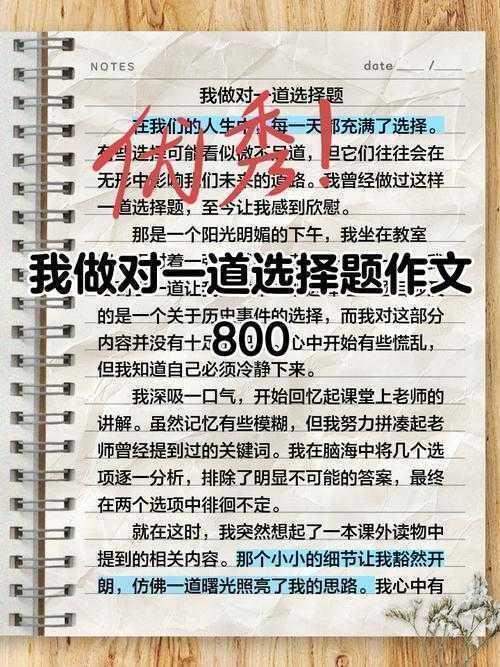 NOTES
date ___ / ___
我做对一道选择题
优秀!
在我们的人生中,每一天都充满了选择。
有些选择可能看似微不足道,但它们往往会在
无形中影响我们未来的道路。我曾经做过这样
一道选择题,至今让我感到欣慰。
那是一个阳光明媚的下午,我坐在教室
我做对一道选择题作文
800
的是一个关于历史事件的选择,而我对这部分
内容并没有十足 心中开始有些慌乱,
但我知道自己必须冷静下来。
我深吸一口气,开始回忆起课堂上老师的
讲解。虽然记忆有些模糊,但我努力拼凑起老
师曾经提到过的关键词。我在脑海中将几个选
项逐一分析,排除了明显不可能的答案,最终
在两个选项中徘徊不定。
就在这时,我突然想起了一本课外读物中
提到的相关内容。那个小小的细节让我豁然开
朗,仿佛一道曙光照亮了我的思路。我心中有